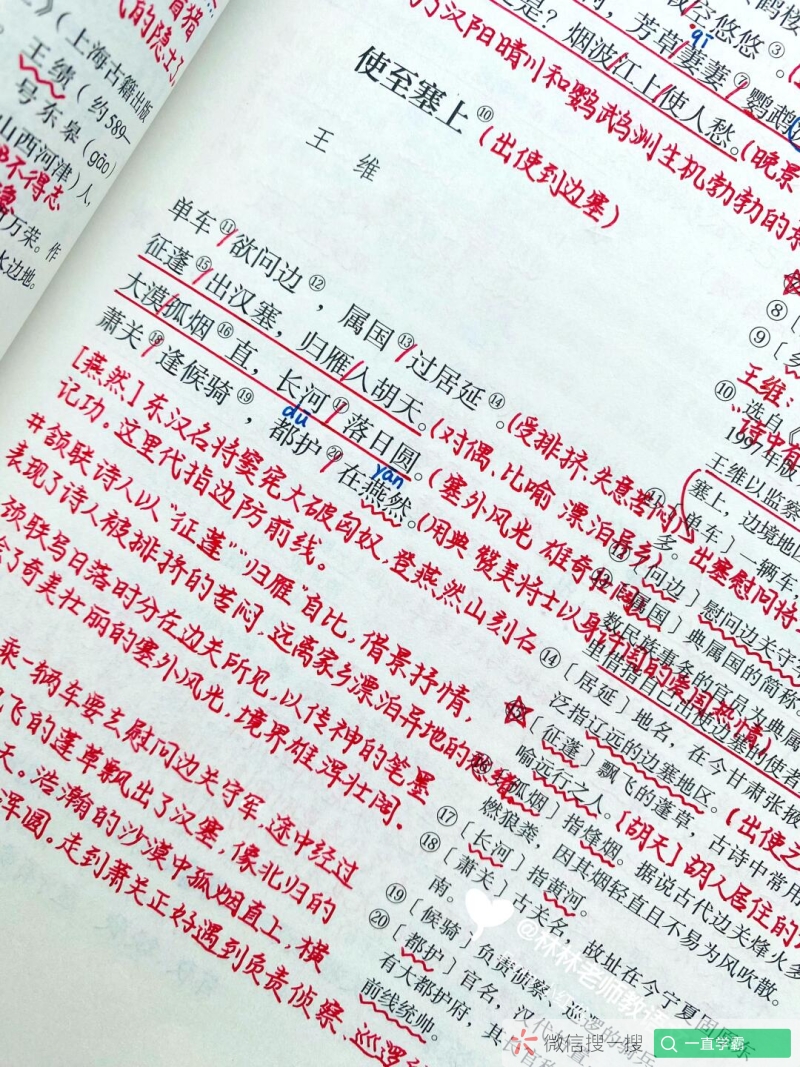 《（上海古籍出版
王绩（约589—
号东皋（gāo）
山西河津）人，
不得志
万荣。作
水边地。
芳草萋萋⑦鹦鹉
qī
是？烟波江上使人愁。（晚景
汉阳晴川和鹦鹉洲生机勃勃的景
使至塞上⑩（出使到边塞）
王维
单车⑪欲问边⑫，属国⑬过居延⑭。（受排挤、失意苦闷）
征蓬⑮出汉塞，归雁入胡天。（对偶、比喻 漂泊异乡）
大漠孤烟⑯直，长河⑰落日圆。（塞外风光 雄奇壮阔）
萧关⑱逢候骑⑲，都护⑳在燕然。（用典 赞美将士以身许国的爱国热情）
dū
yān
[燕然]东汉名将窦宪大破匈奴，登燕然山刻石
记功。这里代指边防前线。
#颔联诗人以“征蓬”“归雁”自比，借景抒情，
表现了诗人被排挤的苦闷，远离家乡漂泊异地的愁绪
颈联写日落时分在边关所见，以传神的笔墨
了奇美壮丽的塞外风光，境界雄浑壮阔.
乘一辆车要去慰问边关守军，途中经过
飞的蓬草飘出了汉塞，像北归的
天。浩瀚的沙漠中孤烟直上，横
浑圆。走到萧关正好遇到负责侦察、巡逻
⑧〔
⑨〔
王维：
⑩ 选自《
“诗中有
1997年版
王维以监察
塞上，边境地
⑪〔单车〕一辆车，
多。出塞慰问将
⑫〔问边〕慰问边关守
⑬〔属国〕典属国的简称
数民族事务的官员为典属
里借指自己出使边塞的使者
⑭〔居延〕地名，在今甘肃张掖
泛指辽远的边塞地区。（出使之
⑮〔征蓬〕飘飞的蓬草，古诗中常用
喻远行之人。[胡天]胡人居住的
⑯〔孤烟〕指烽烟。据说古代边关烽火多
燃狼粪，因其烟轻直且不易为风吹散。
⑰〔长河〕指黄河。
⑱〔萧关〕古关名，故址在今宁夏固原东
南。
⑲〔候骑〕负责侦察、巡逻的骑兵
⑳〔都护〕官名，汉代
有大都护府，其长官
前线统帅。
@林林老师教语
微信搜一搜
一直学霸